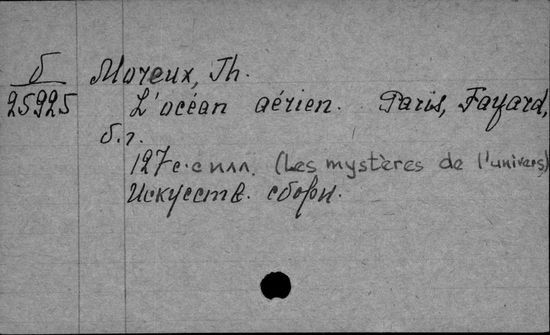 б
25925
Moreux, Th.
L'océan aérien. Paris, Fayard,
б.г.
127 с. с илл. (Les mystères de l'univers)
Искусств. сборн.